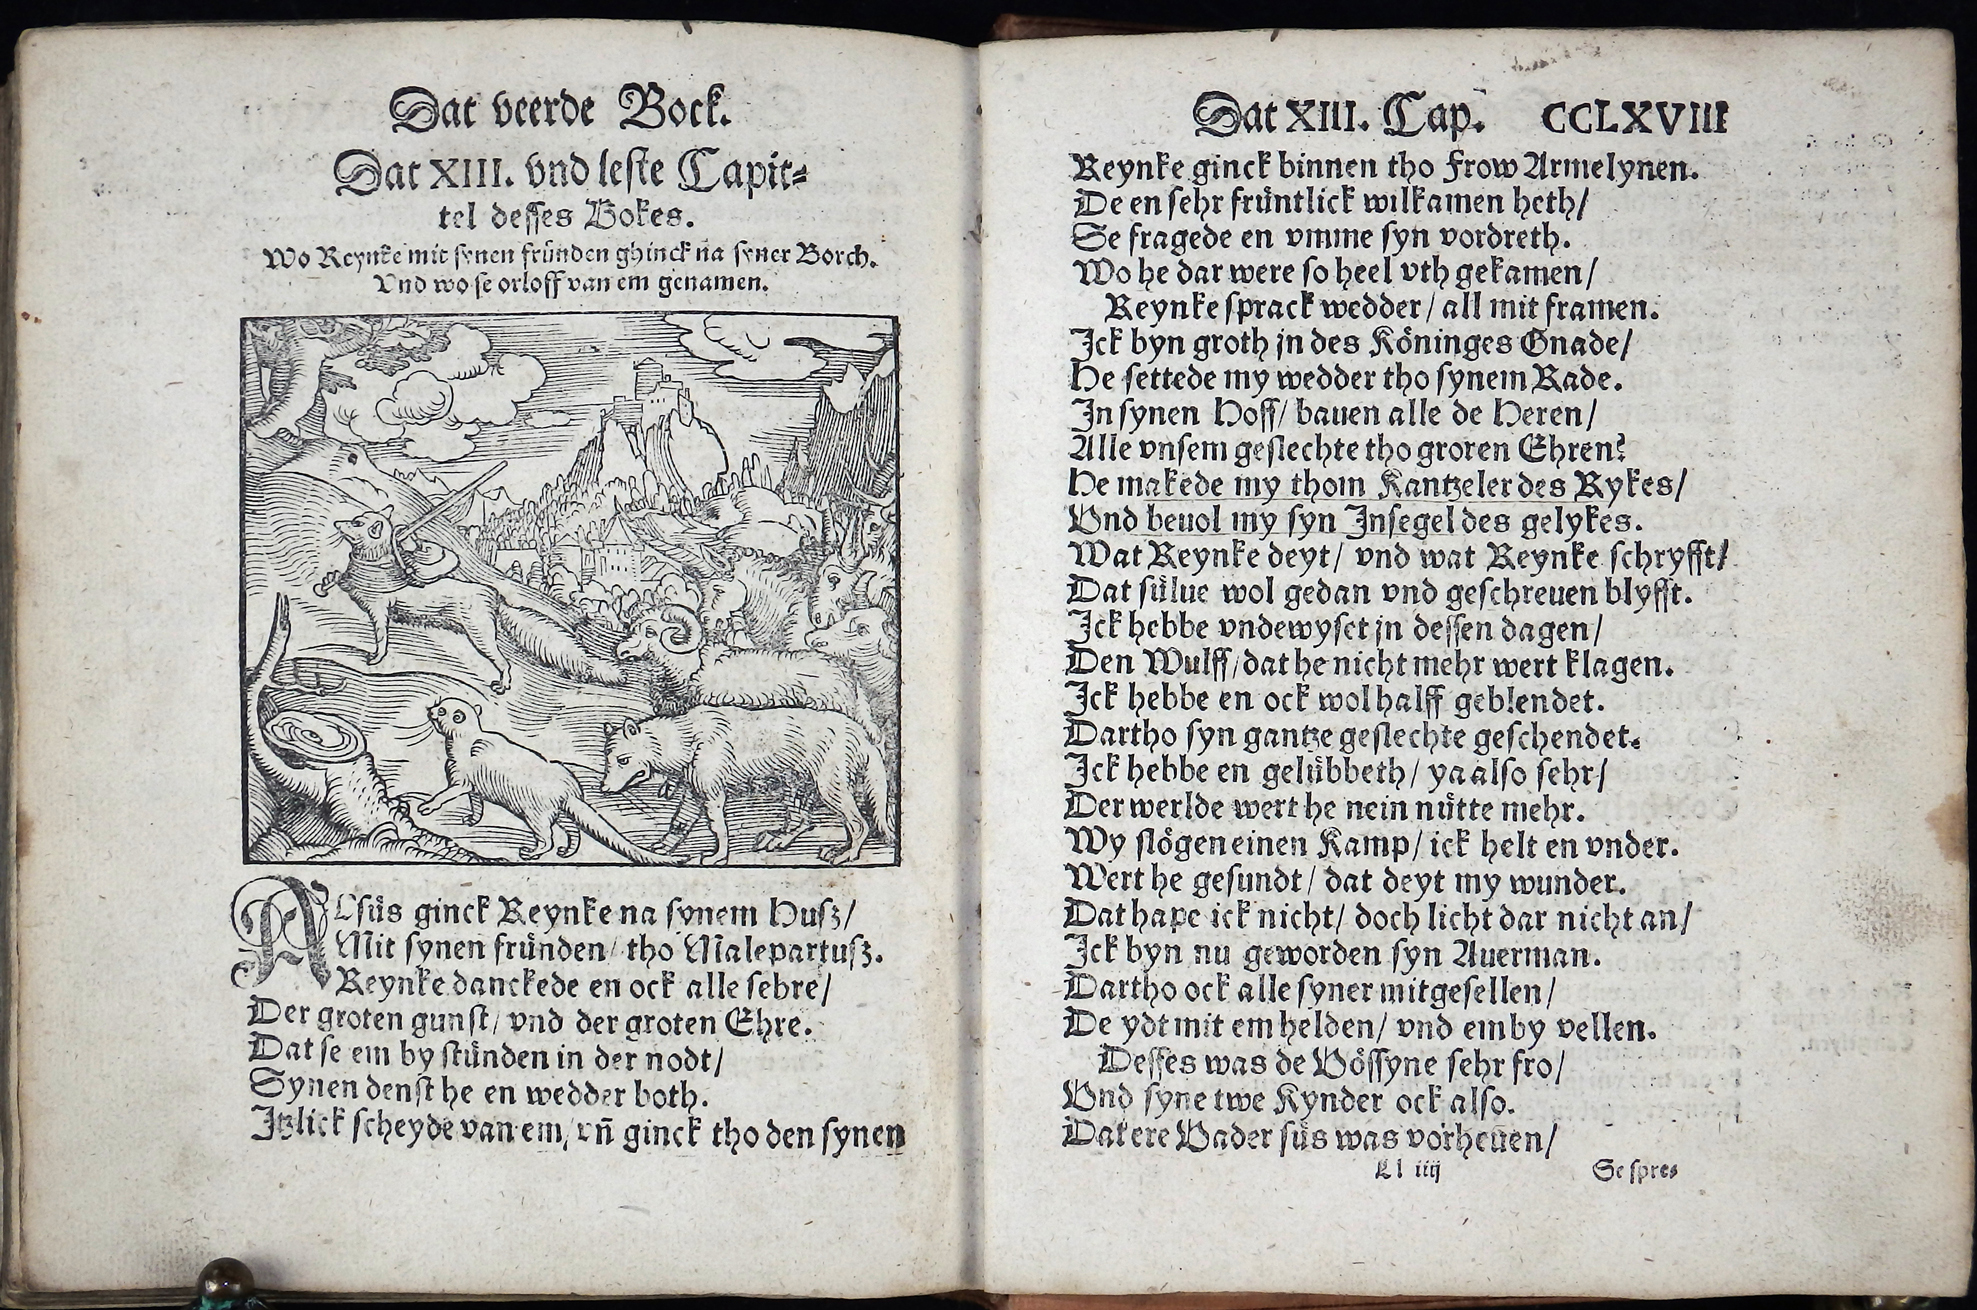 Dat veerde Bock.
Dat XIII. vnd leste Capit⸗
tel desses Bokes.
Wo Reynke mit synen fründen ghinck na syner Borch.
Vnd wo se orloff van em genamen.
ALsüs ginck Reynke na synem Husz/
Mit synen fründen/ tho Malepartusz.
Reynke danckede en ock alle sehre/
Der groten gunst/ vnd der groten Ehre.
Dat se em by stünden in der nodt/
Synen denst he en wedder both.
Itzlick scheyde van em/ vñ ginck tho den synen
Dat XIII. Cap. CCLXVIII
Reynke ginck binnen tho Frow Armelynen.
De en sehr früntlick wilkamen heth/
Se fragede en vmme syn vordreth.
Wo he dar were so heel vth gekamen/
Reynke sprack wedder/ all mit framen.
Ick byn groth jn des Köninges Gnade/
He settede my wedder tho synem Rade.
In synen Hoff/ bauen alle de Heren/
Alle vnsem geslechte tho groren Ehren?
He makede my thom Kantzeler des Rykes/
Vnd beuol my syn Insegel des gelykes.
Wat Reynke deyt/ vnd wat Reynke schryfft/
Dat sülue wol gedan vnd geschreuen blyfft.
Ick hebbe vndewyset jn dessen dagen/
Den Wulff/ dat he nicht mehr wert klagen.
Ick hebbe en ock wol halff geblendet.
Dartho syn gantze geslechte geschendet.
Ick hebbe en gelübbeth/ ya also sehr/
Der werlde wert he nein nütte mehr.
Wy slögen einen Kamp/ ick helt en vnder.
Wert he gesundt/ dat deyt my wunder.
Dat hape ick nicht/ doch licht dar nicht an/
Ick byn nu geworden syn Auerman.
Dartho ock alle syner mitgesellen/
De ydt mit em helden/ vnd em by vellen.
Desses was de Vössyne sehr fro/
Vnd syne twe Kynder ock also.
Dat ere Vader süs was vorheuen/
Ll iiij Se spre⸗